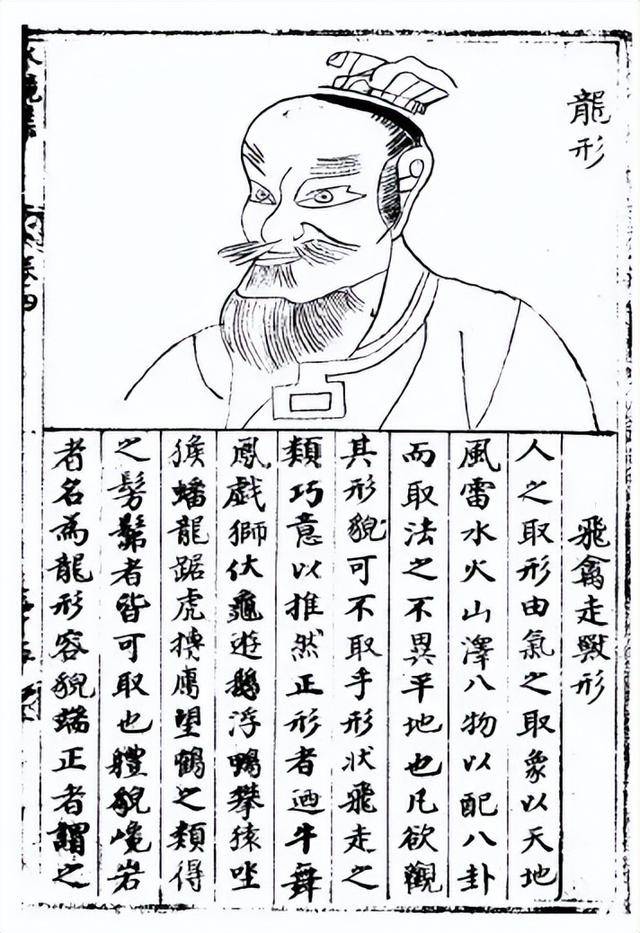 龍形
飛禽走獸形
人之取形由氣之取象以天地
風雷水火山澤八物以配八卦
而取法之不異乎地也凡欲觀
其形貌可不取乎形狀飛走之
類巧意以推然正形者迺牛舞
鳳戲獅伏龜遊鵝浮鴨攀猿坐
猴蟠龍踞虎摶鷹望鶴之類得
之髣髴者皆可取也體貌巉岩
者名為龍形容貌端正者謂之
卷四